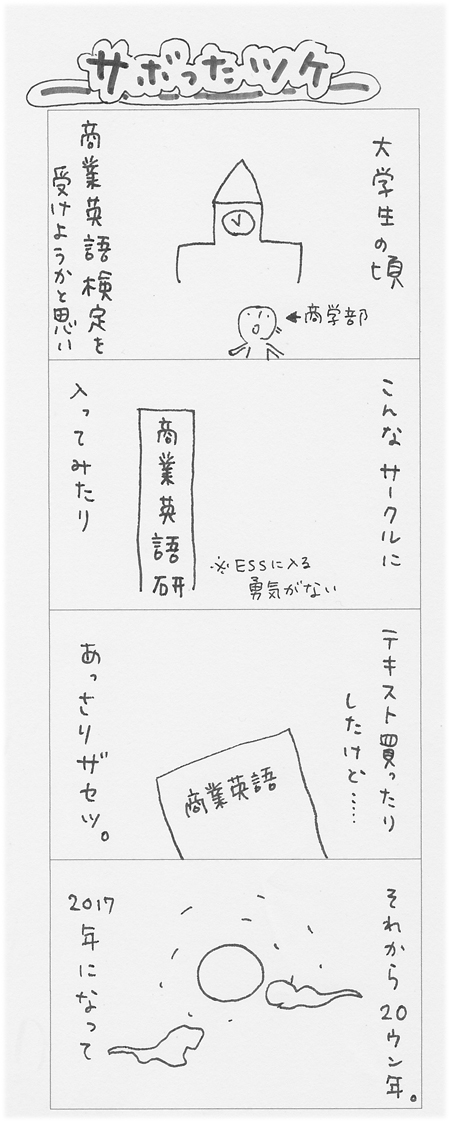 サボったツケ
大学生の頃
商業英語検定を
受けようかと思い
←商学部
こんなサークルに
入ってみたり
商業英語研
※ESSに入る
勇気がない
テキスト買ったり
したけど……
あっさりザセツ。
商業英語
それから20ウン年。
2017
年になって